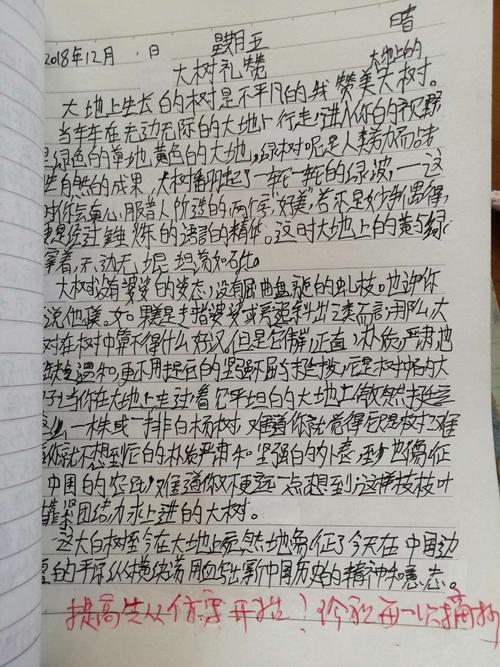 2018年12月 日 星期五 晴
大树礼赞
大地上的
大地上生长的树是不平凡的我赞美大树。
当车车在无边无际的大地上行走,进入你的视野
是绿色的草地,黄色的大地。绿树呢是人类努力而战
胜自然的成果,大树翻起了一轮一轮的绿波,——这
时你会真心服昔人所造的两个字"好美",若不是妙手偶得,
便是经过锤炼的语言的精华。这时大地上的黄与绿
着,无边无垠坦荡如砥。
大树没有婆娑的姿态,没有屈曲盘旋的虬枝。也许你
说他
树在树中算不得什么好汉,但是它伟,正直,朴质,严肃,也
缺乏温和,更不用提后的坚强不屈与挺拔,它是树中的大
子!当你在大地上走过,看它平坦的大地上傲然挺立
一株或一排白杨树,难道你就觉得它只是树?难
你就不想到它的朴质严肃和坚强白的外表,至少也象征
中国的农民,难道你不更远一点想到这样枝枝叶
靠紧团结力求上进的大树。
这大白树至今在大地上宛然地象征了今天在中国边
的平原纵横决荡用血写出新中国历史的精神和意志。
提高先从仿写开始!